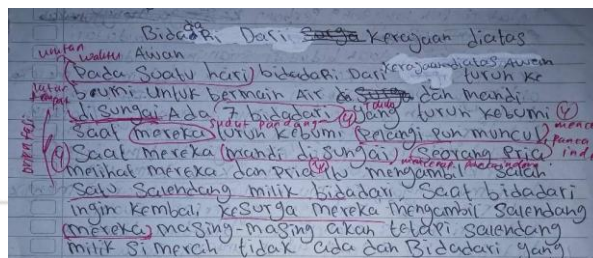 Bidadari Dari Kerajaan diatas
Awan
urutan waktu
Pada Suatu hari bidadari Dari kerajaan diatas Awan turun ke
latar tempat
bumi untuk bermain Air dan mandi
disungai Ada 7 bidadari yang turun kebumi
sudut pandang
Saat mereka turun kebumi Pelangi pun muncul
panca
Saat mereka mandi disungai, seorang Pria
melihat mereka dan Pria itu mengambil salah
Satu Salendang milik bidadari, Saat bidadari
ingin kembali kesurga mereka mengambil Salendang
mereka masing-masing akan tetapi salendang
milik Si merah tidak ada dan Bidadari yang